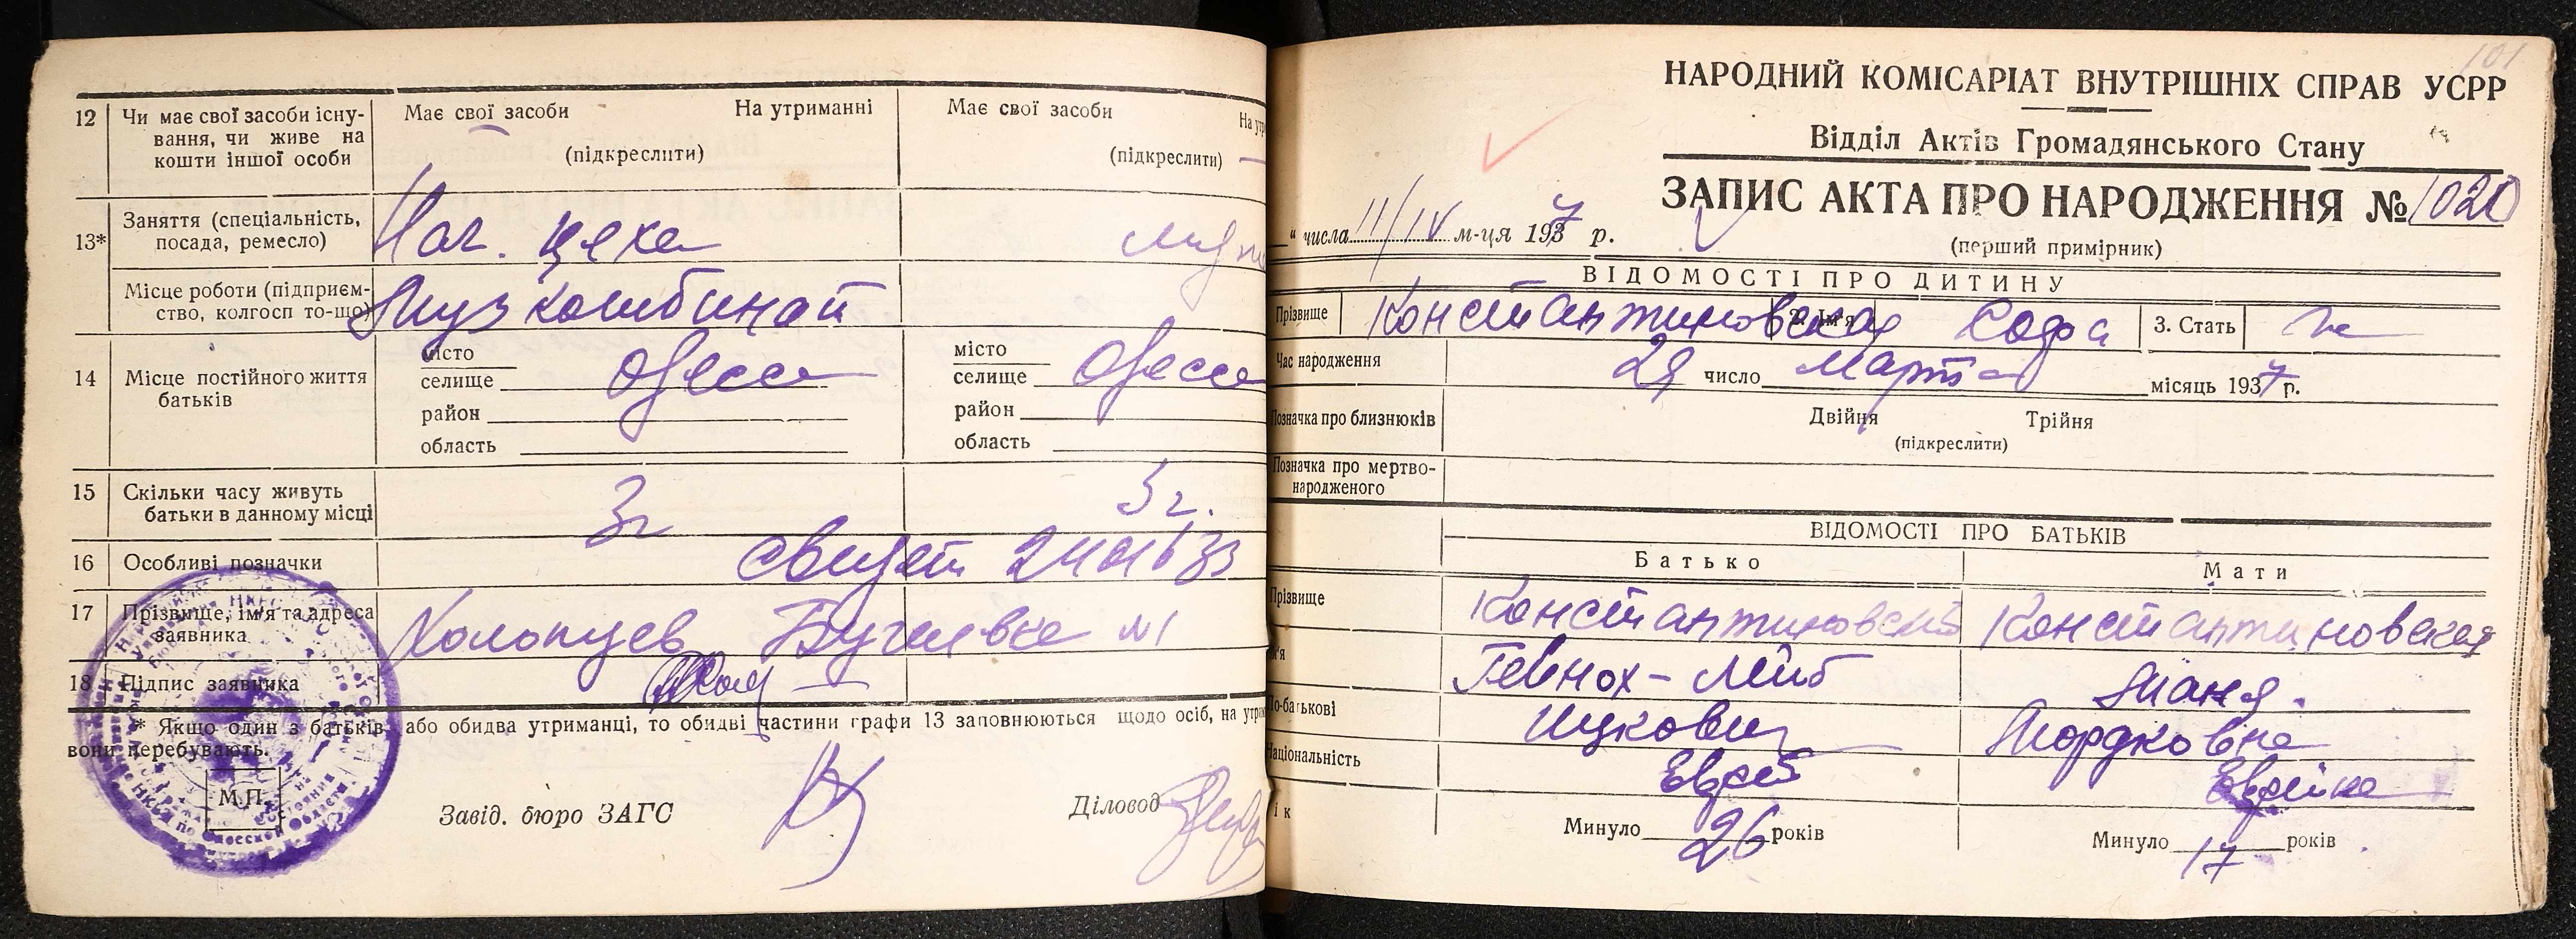 12 Чи має свої засоби існу-
вання, чи живе на
кошти іншої особи
Має свої засоби На утриманні
(підкреслити)
Має свої засоби
(підкреслити)
13* Заняття (спеціальність,
посада, ремесло)
Нач. цеха
Місце роботи (підприєм-
ство, колгосп то-що)
Муз комбинат
14 Місце постійного життя
батьків
місто
селище Одесса
район
область
місто
селище Одесса
район
область
15 Скільки часу живуть
батьки в данному місці
3г 3г.
16 Особливі позначки
17 Прізвище, ім'я та адреса
заявника
№1
18 Підпис заявника
* Якщо один з батьків, або обидва утриманці, то обидві частини графи 13 заповнюються щодо осіб, на
вони перебувають.
М.П.
Завід. бюро ЗАГС Діловод
101
НАРОДНИЙ КОМІСАРІАТ ВНУТРІШНІХ СПРАВ УСРР
Відділ Актів Громадянського Стану
ЗАПИС АКТА ПРО НАРОДЖЕННЯ № 1020
" числа 11/IV м-ця 1937 р.
(перший примірник)
ВІДОМОСТІ ПРО ДИТИНУ
Прізвище Константиновская 2. Ім'я Софа 3. Стать ж
Час народження 29 число Марта місяць 1937 р.
Позначка про близнюків Двійня Трійня
(підкреслити)
Позначка про мертво-
народженого
ВІДОМОСТІ ПРО БАТЬКІВ
Батько Мати
Прізвище Константиновский Константиновская
Ім'я Гейнох-Лейб Маня.
По-батькові Ицкович Мордковна
Національність Еврей Еврейка
Вік Минуло 26 років Минуло 17 років